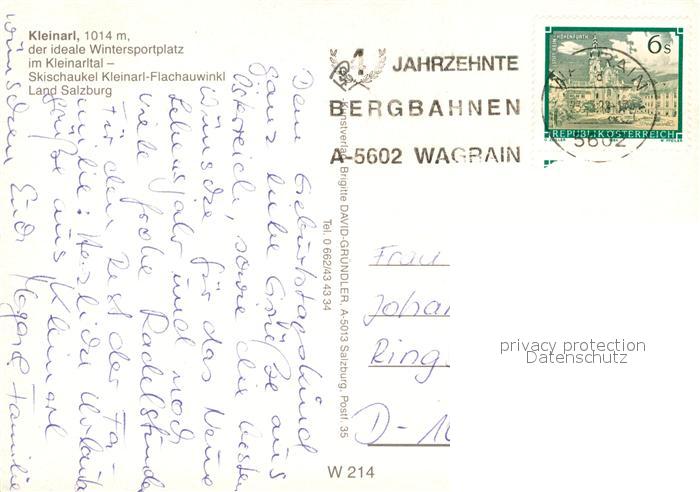 Kleinarl, 1014 m,
der ideale Wintersportplatz
im Kleinarltal –
Skischaukel Kleinarl-Flachauwinkl
Land Salzburg
4 JAHRZEHNTE
BERGBAHNEN
A-5602 WAGRAIN
6s
REPUBLIK ÖSTERREICH
WAGRAIN
5602
Kunstverlag Brigitte DAVID-GRÜNDLER, A-5013 Salzburg, Postf. 35
Tel. 0 662/43 43 34
Dem Geburtstagskind
ganz liebe Grüße aus
Österreich, sowie die besten
Wünsche für das Neue
Lebensjahr und noch
viele frohe Radelstunden
Für den Rest der Fa-
milie: Herzliche Urlaubs-
grüße aus Kleinarl
wünschen Euch
Familie
Frau
Johan
Ring
D-
W 214
privacy protection
Datenschutz